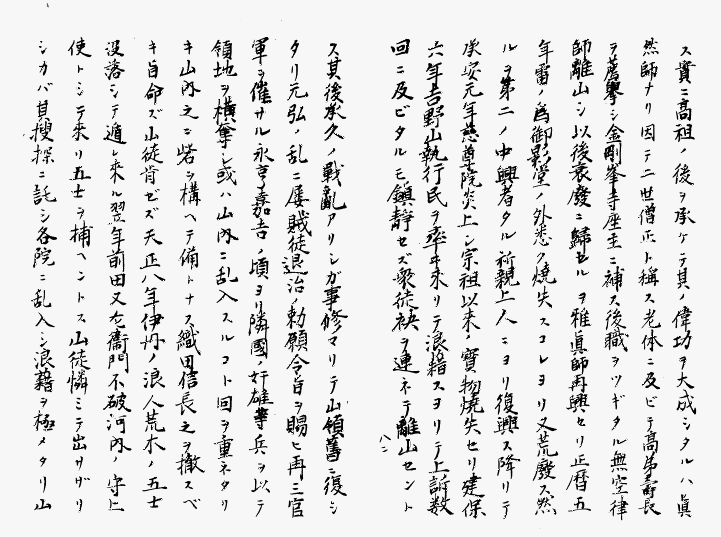 ス實ニ高祖ノ後ヲ承ケテ其ノ偉功ヲ大成シタルハ眞
然師ナリ因テ二世僧正ト稱ス老体ニ及ビテ高弟壽長
ヲ薦擧シ金剛峯寺座主ニ補ス後職ヲツギタル無空律
師離山シ以後衰廢ニ歸セルヲ雅眞師再興セリ正暦五
年雷ノ爲御影堂ノ外悉ク燒失スコレヨリ又荒廢ス然
ルヲ第二ノ中興者タル祈親上人ニヨリ復興ス降リテ
承安元年慈尊院炎上シ宗祖以来ノ寳物燒失セリ建保
六年吉野山執行民ヲ率ヰ来リテ浪籍スヨリテ上訴数
回ニ及ビタルモ鎮静セズ衆徒袂ヲ連ネテ離山セント
八二
ス其後承久ノ戰亂アリシガ事修マリテ山領舊ニ復シ
タリ元弘ノ乱ニ屡賊徒退治ノ勅願令旨ヲ賜ヒ再三官
軍ヲ催サル永享嘉吉ノ頃ヨリ隣國ノ奸雄等兵ヲ以テ
領地ヲ横奪シ或ハ山内ニ乱入スルコト回ヲ重ネタリ
キ山内之ニ砦ヲ構ヘテ備トナス織田信長之ヲ撤スベ
キ旨命ズ山徒肯ゼズ天正八年伊丹ノ浪人荒木ノ五士
没落シテ遁レ来ル翌年前田又左衞門不破河内ノ守上
使トシテ来リ五士ヲ捕ヘントス山徒憐ミテ出サザリ
シカバ其捜探ニ託シ各院ニ乱入シ浪藉ヲ極メタリ山